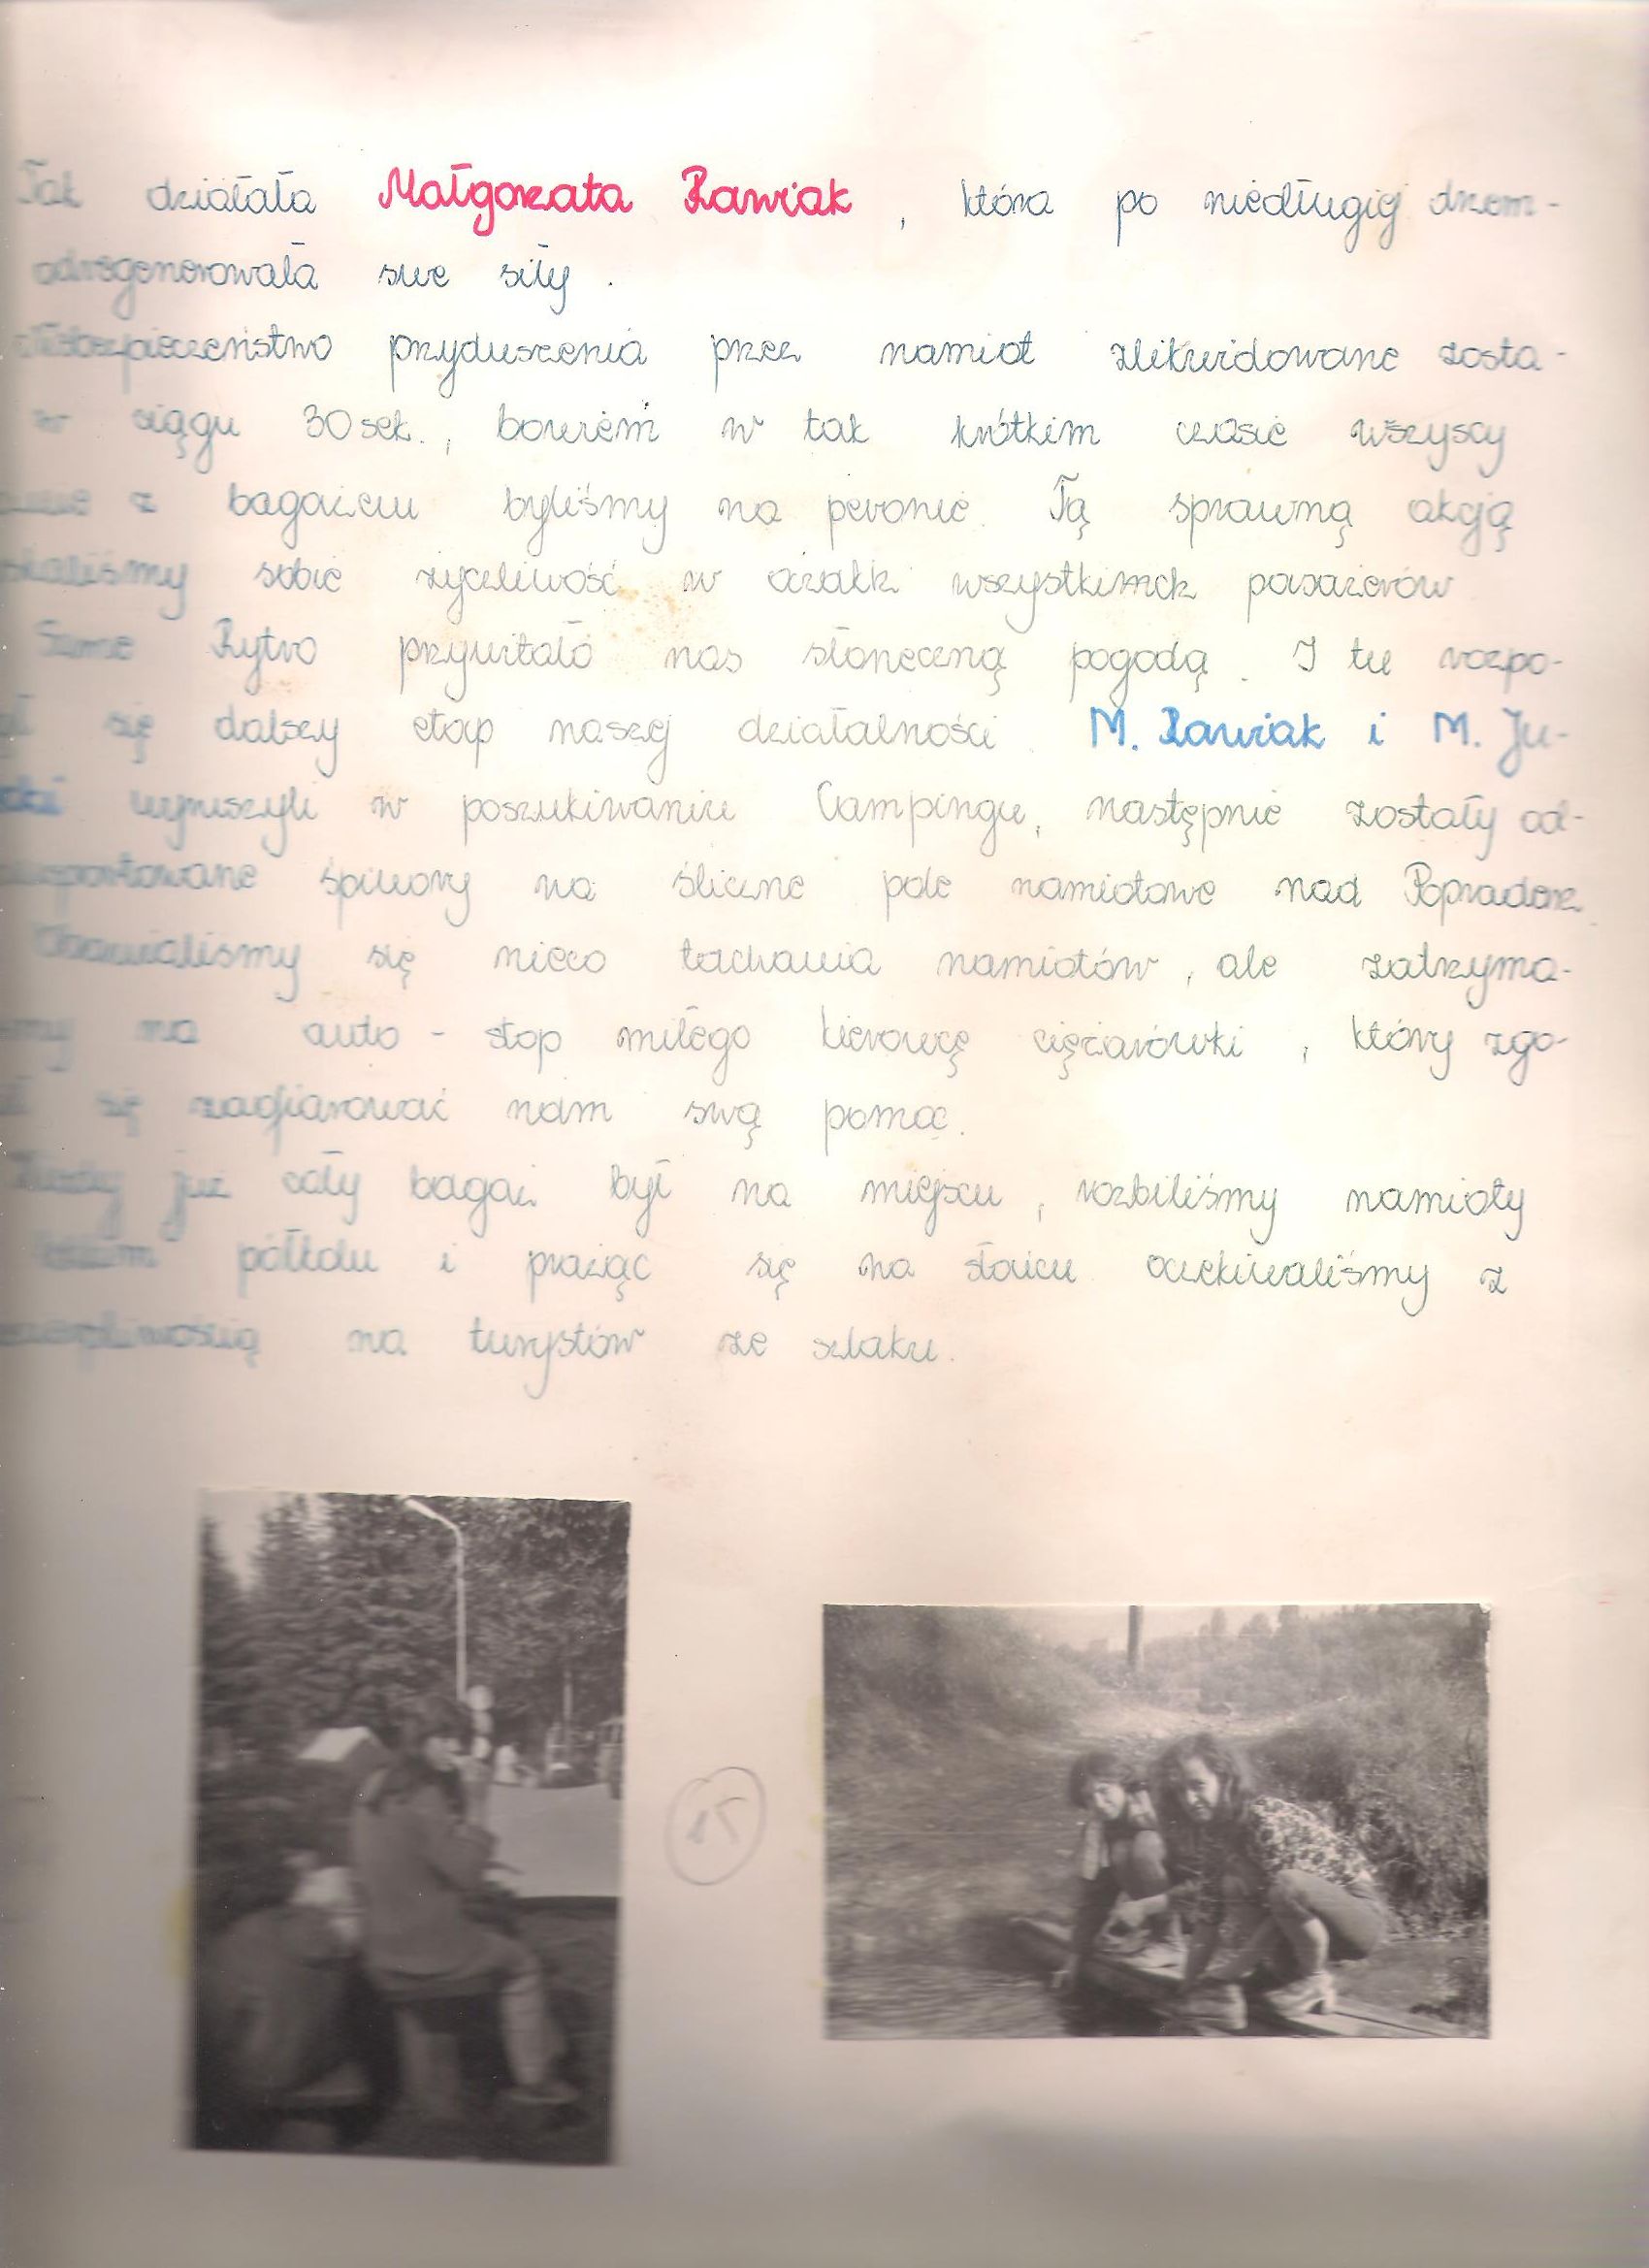 Tak działała Małgorzata Rawiak, która po niedługiej drzem-
odregenerowała swe siły.
niebezpieczeństwo przyduszenia przez namiot zlikwidowane zosta-
w ciągu 30 sek., bowiem w tak krótkim czasie wszyscy
z bagażem byliśmy na peronie. Tą sprawną akcją
skaliśmy sobie życzliwość w oczach pasażerów
Samo Rytro przywitało nas słoneczną pogodą. I tu rozpo-
ął się dalszy etap naszej działalności. M. Rawiak i M. Ju-
wyruszyli w poszukiwaniu Campingu, następnie zostały od-
śpiwory na śliczne pole namiotowe nad Popradem.
Obawialiśmy się nieco tachania namiotów, ale zatrzyma-
my na auto-stop miłego kierowcę ciężarówki, który zgo-
ł się zaofiarować nam swą pomoc.
Kiedy już cały bagaż był na miejscu, rozbiliśmy namioty
półkolu i prażąc się na słońcu oczekiwaliśmy z
cierpliwością na turystów ze szlaku.
15